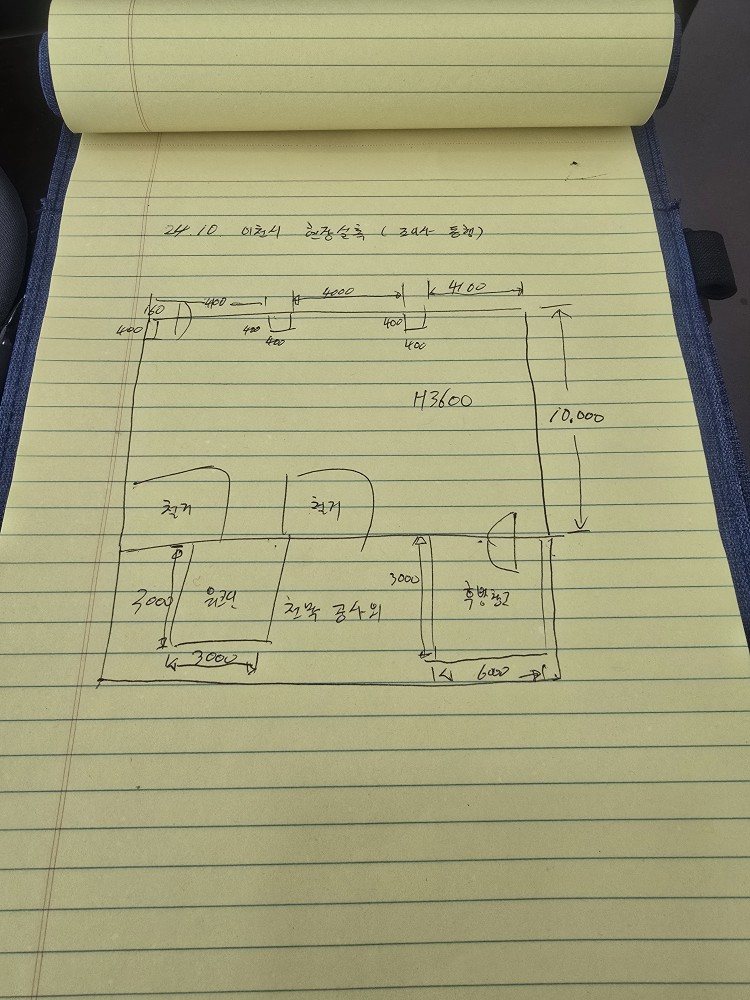 24.10 이천시 현장실측 (조사 동행)
400 4000 4100
160
400 400 400
400 400
H3600
10.000
철거 철거
3000
3000 천막 공사외
3000 6000